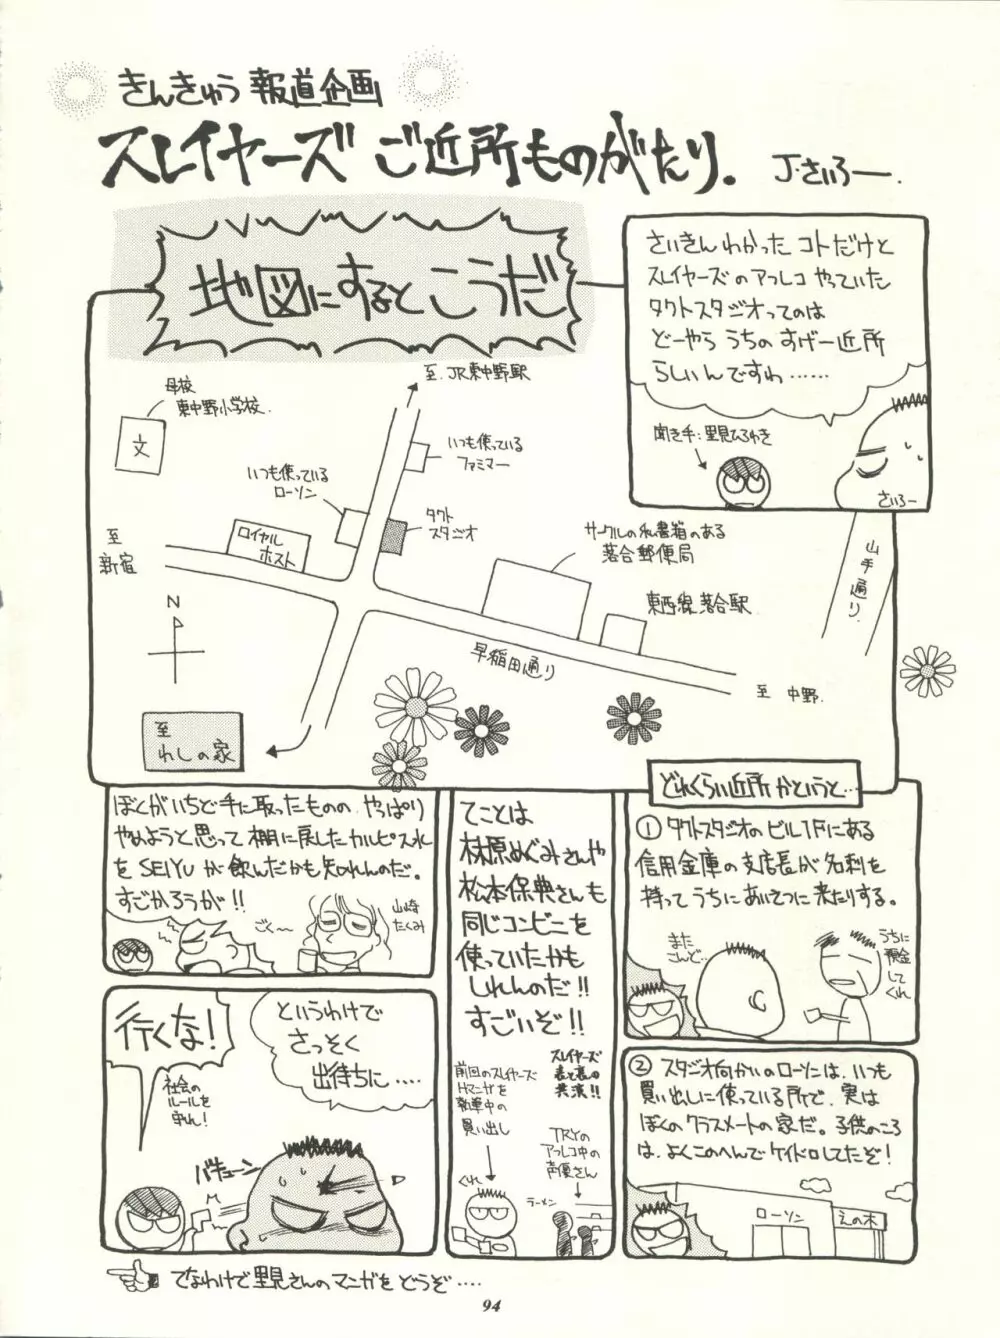 きんきゅう 報道企画
スレイヤーズ ご近所ものがたり.
J・さいろー.
地図にするとこうだ
さいきんわかったコトだけと
スレイヤーズのアフレコやっていた
タクトスタジオってのは
どーやらうちのすげー近所
らしいんですわ……
聞き手:里見ひろゆき
さいろー
至 JR東中野駅
母校
東中野小学校.
文
いつも使っている
ファミマー
いつも使っている
ローソン
タクト
スタジオ
ロイヤル
ホスト
サークルの私書箱のある
落合郵便局
山手通り
至
新宿
東西線落合駅
N
早稲田通り
至 中野.
至
わしの家
どれくらい近所かというと…
① タクトスタジオのビル1Fにある
信用金庫の支店長が名刺を
持ってうちにあいさつに来たりする。
また
こんど…
うちに
預金
してくれ
② スタジオ向かいのローソンは、いつも
買い出しに使っている所で、実は
ぼくのクラスメートの家だ。子供のころ
は、よくこのへんでケイドロしてたぞ!
ローソン
えの木
てことは
林原めぐみさんや
松本保典さんも
同じコンビニを
使っていたかも
しれんのだ!!
すごいぞ!!
スレイヤーズ
表と裏の
共演!!
前回のスレイヤーズ
Hマンガを
執筆中の
買い出し
TRYの
アフレコ中の
声優さん
くれ
ラーメン
ぼくがいちど手に取ったものの やっぱり
やめようと思って棚に戻したカルピス水
を SEIYUが飲んだかも知れんのだ。
すごかろうが!!
ごく〜
山崎
たくみ
というわけで
さっそく
出待ちに....
行くな!
社会の
ルールを
守れ!
バキューン
でなわけで里見さんのマンガをどうぞ....
94